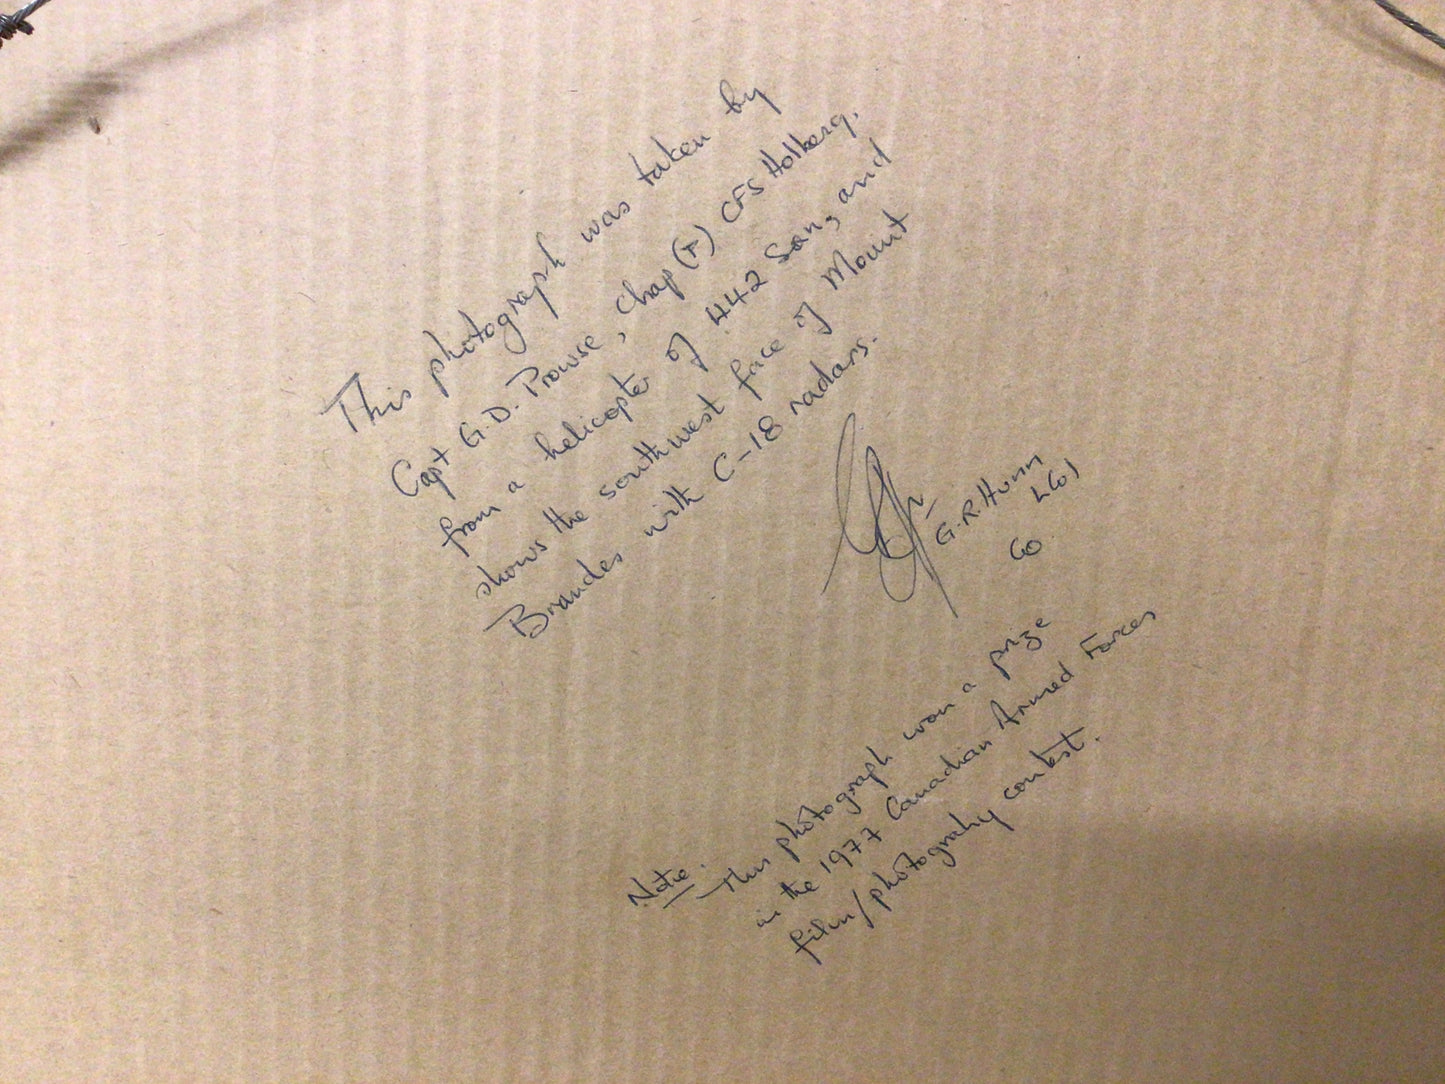 This photograph was taken by
Capt G.D. Prowse, Chap (P) CFS Holberg,
from a helicopter of 442 Sqn, and
shows the southwest face of Mount
Brandes with C-18 radars.
G.R. Hunn
LCol
CO
Note: This photograph won a prize
in the 1977 Canadian Armed Forces
film/photograhy contest.